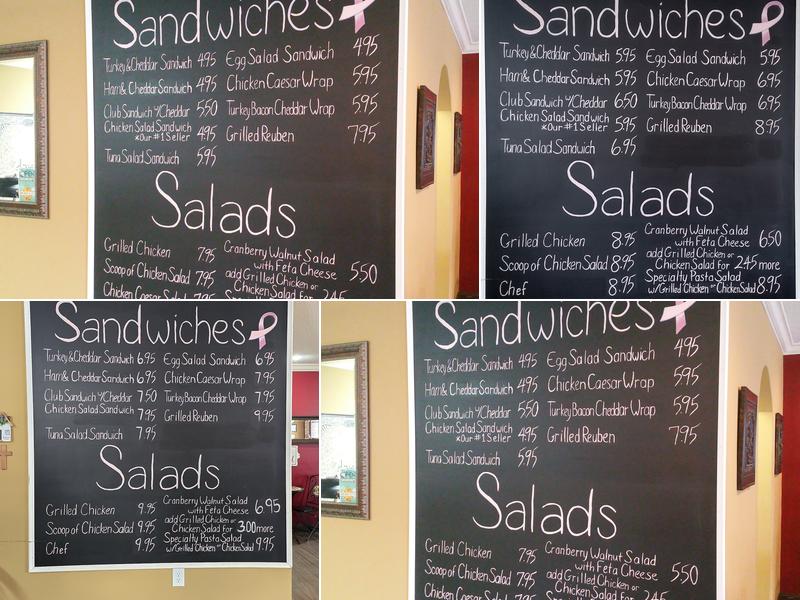 Sandwiches
Turkey & Cheddar Sandwich 4.95 Egg Salad Sandwich 4.95
Ham & Cheddar Sandwich 4.95 Chicken Caesar Wrap 5.95
Club Sandwich w/Cheddar 5.50 Turkey Bacon Cheddar Wrap 5.95
Chicken Salad Sandwich
*Our #1 Seller 4.95 Grilled Reuben 7.95
Tuna Salad Sandwich 5.95
Salads
Grilled Chicken 7.95 Cranberry Walnut Salad
with Feta Cheese 5.50
Scoop of Chicken Salad 7.95 add Grilled Chicken or
Chicken Salad for 2.45
Chicken Caesar Salad 7.95
Sandwiches
Turkey & Cheddar Sandwich 5.95 Egg Salad Sandwich 5.95
Ham & Cheddar Sandwich 5.95 Chicken Caesar Wrap 6.95
Club Sandwich w/Cheddar 6.50 Turkey Bacon Cheddar Wrap 6.95
Chicken Salad Sandwich
*Our #1 Seller 5.95 Grilled Reuben 8.95
Tuna Salad Sandwich 6.95
Salads
Grilled Chicken 8.95 Cranberry Walnut Salad
with Feta Cheese 6.50
Scoop of Chicken Salad 8.95 add Grilled Chicken or
Chicken Salad for 2.45 more
Chef 8.95 Specialty Pasta Salad
w/Grilled Chicken or Chicken Salad 8.95
Sandwiches
Turkey & Cheddar Sandwich 6.95 Egg Salad Sandwich 6.95
Ham & Cheddar Sandwich 6.95 Chicken Caesar Wrap 7.95
Club Sandwich w/Cheddar 7.50 Turkey Bacon Cheddar Wrap 7.95
Chicken Salad Sandwich
7.95 Grilled Reuben 9.95
Tuna Salad Sandwich 7.95
Salads
Grilled Chicken 9.95 Cranberry Walnut Salad
with Feta Cheese 6.95
Scoop of Chicken Salad 9.95 add Grilled Chicken or
Chicken Salad for 3.00 more
Chef 9.95 Specialty Pasta Salad
w/Grilled Chicken or Chicken Salad 9.95
Sandwiches
Turkey & Cheddar Sandwich 4.95 Egg Salad Sandwich 4.95
Ham & Cheddar Sandwich 4.95 Chicken Caesar Wrap 5.95
Club Sandwich w/Cheddar 5.50 Turkey Bacon Cheddar Wrap 5.95
Chicken Salad Sandwich
*Our #1 Seller 4.95 Grilled Reuben 7.95
Tuna Salad Sandwich 5.95
Salads
Grilled Chicken 7.95 Cranberry Walnut Salad
with Feta Cheese 5.50
Scoop of Chicken Salad 7.95 add Grilled Chicken or
Chicken Salad for 2.45
Chicken Caesar Salad 7.95